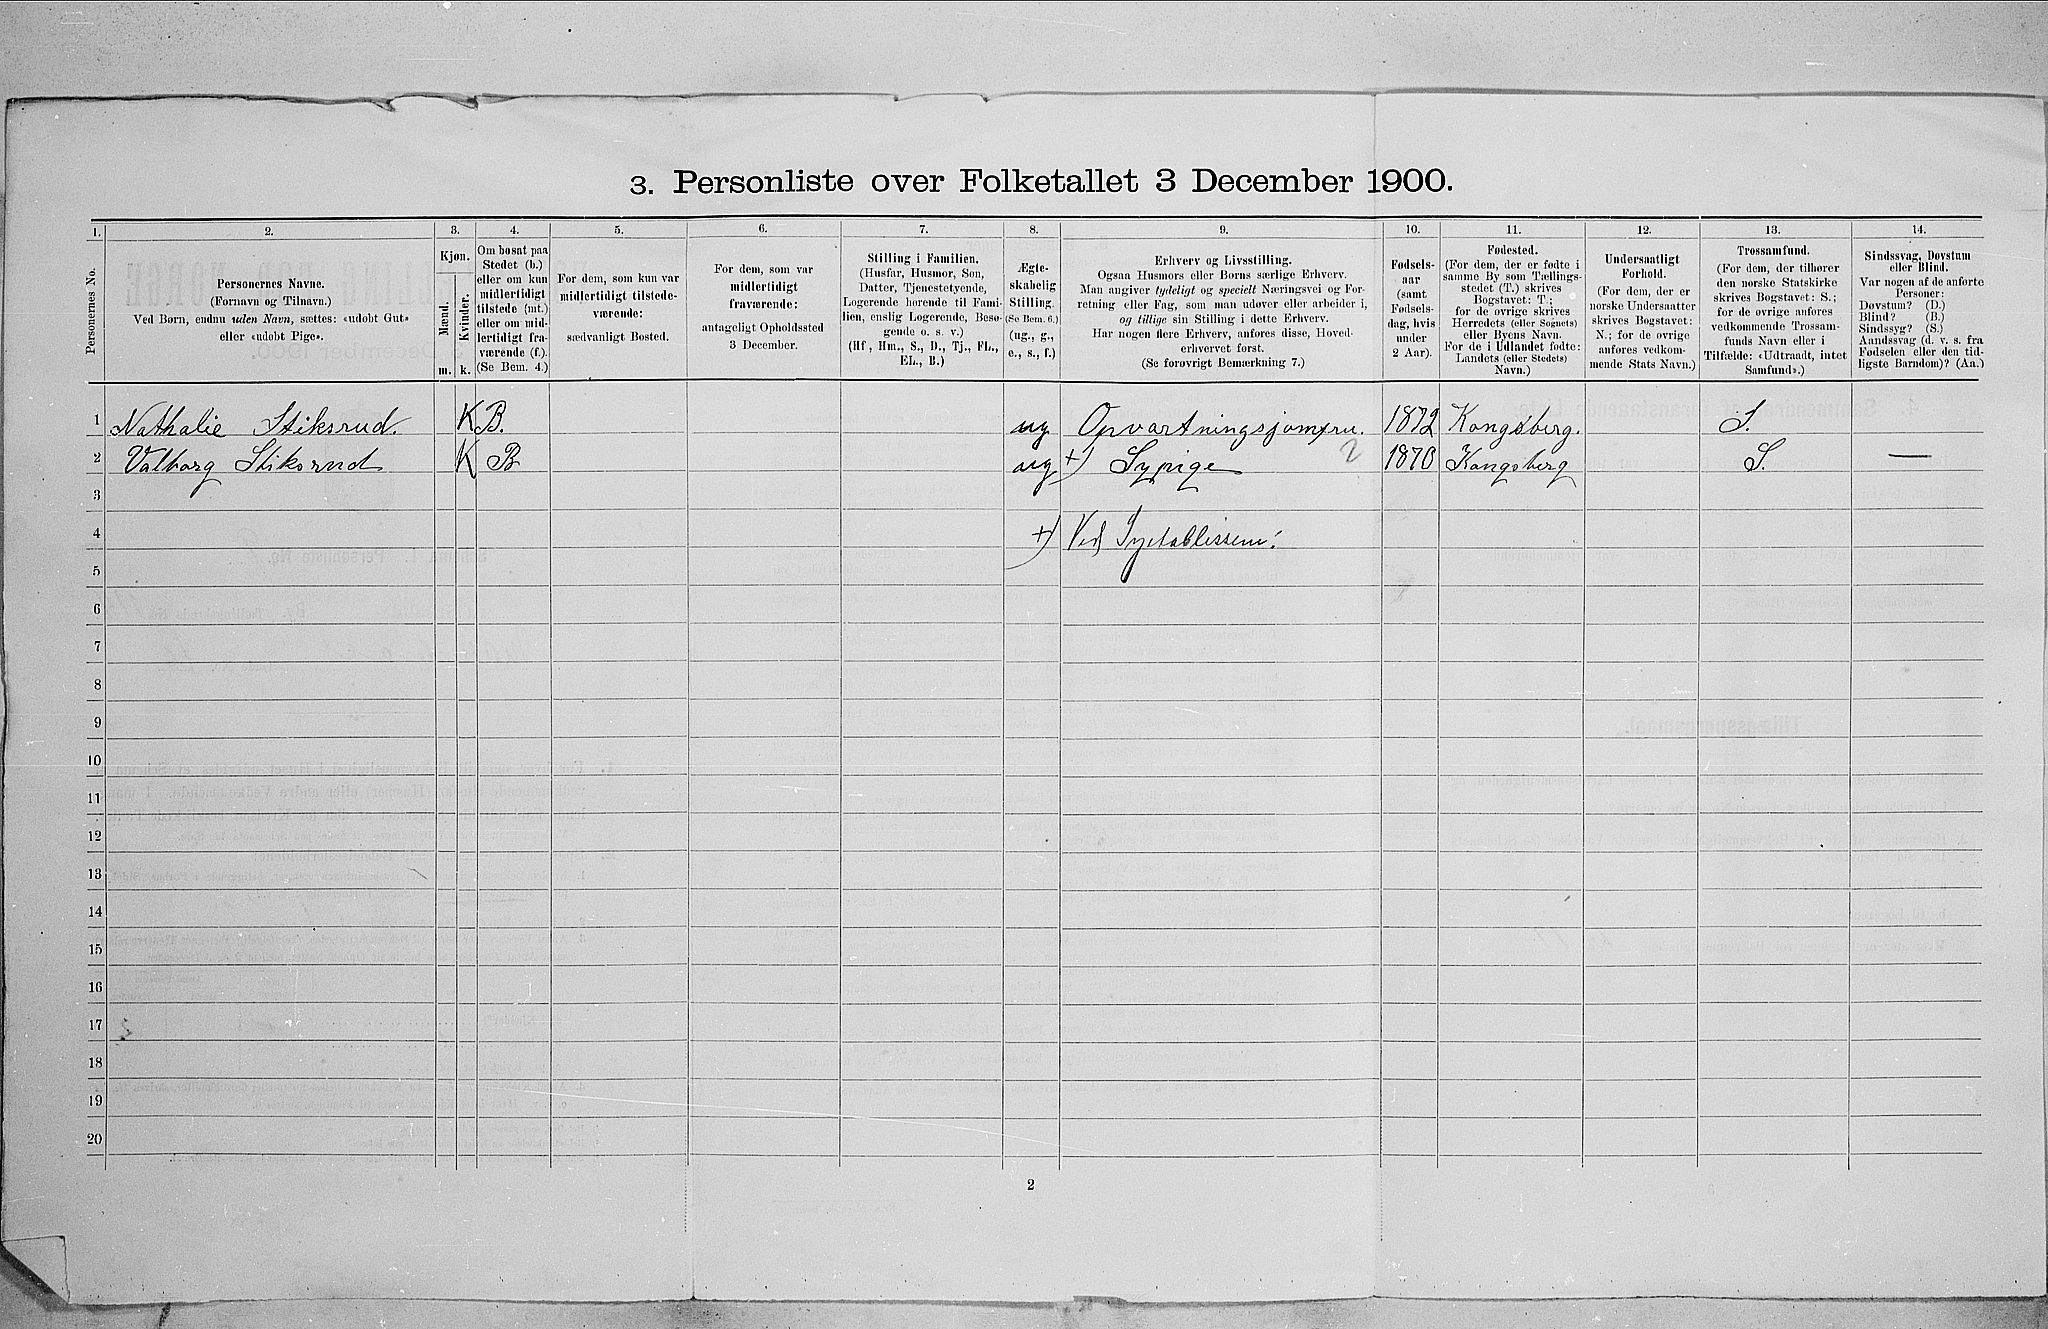 3. Personliste over Folketallet 3 December 1900.
1.
Personernes No.
2.
Personernes Navne.
(Fornavn og Tilnavn.)
Ved Børn, endnu uden Navn, sættes: «udøbt Gut»
eller «udøbt Pige».
3.
Kjøn.
Mænd.
Kvinder.
m.
k.
4.
Om bosat paa
Stedet (b.)
eller om kun
midlertidigt
tilstede (mt.)
eller om mid-
lertidigt fra-
værende (f.).
(Se Bem. 4.)
5.
For dem, som kun var
midlertidigt tilstede-
værende:
sædvanligt Bosted.
6.
For dem, som var
midlertidigt
fraværende:
antageligt Opholdssted
3 December.
7.
Stilling i Familien.
(Husfar, Husmor, Søn,
Datter, Tjenestetyende,
Logerende hørende til Fami-
lien, enslig Logerende, Besø-
gende o. s. v.)
(Hf, Hm., S., D., Tj., FL.,
EL., B.)
8.
Ægte-
skabelig
Stilling.
(Se Bem. 6.)
(ug., g.,
e., s., f.)
9.
Erhverv og Livsstilling.
Ogsaa Husmors eller Børns særlige Erhverv.
Man angiver tydeligt og specielt Næringsvei og For-
retning eller Fag, som man udøver eller arbeider i,
og tillige sin Stilling i dette Erhverv.
Har nogen flere Erhverv, anføres disse, Hoved-
erhvervet først.
(Se forøvrigt Bemærkning 7.)
10.
Fødsels-
aar
(samt
Fødsels-
dag, hvis
under
2 Aar).
11.
Fødested.
(For dem, der er fødte i
samme By som Tællings-
stedet (T.) skrives
Bogstavet: T.;
for de øvrige skrives
Herredets (eller Sognets)
eller Byens Navn.
For de i Udlandet fødte:
Landets (eller Stedets)
Navn.)
12.
Undersaatligt
Forhold.
(For dem, der er
norske Undersaatter
skrives Bogstavet:
N.; for de øvrige
anføres vedkom-
mende Stats Navn.)
13.
Trossamfund.
(For dem, der tilhører
den norske Statskirke
skrives Bogstavet: S.;
for de øvrige anføres
vedkommende Trossam-
funds Navn eller i
Tilfælde: «Udtraadt, intet
Samfund».)
14.
Sindssvag, Døvstum
eller Blind.
Var nogen af de anførte
Personer:
Døvstum? (D.)
Blind? (B.)
Sindssyg? (S.)
Aandssvag (d. v. s. fra
Fødselen eller den tid-
ligste Barndom)? (Aa.)
1 Nathalie Stiksrud. K B. ug Opvartningsjomfru. 1872 Kongsberg. S.
2 Valborg Stiksrud K B ug +) Sypige 2 1870 Kongsberg S. —
3
4 +) Ved Syetablissem:
5
6
7
8
9
10
11
12
13
14
15
16
17
18
19
20
2